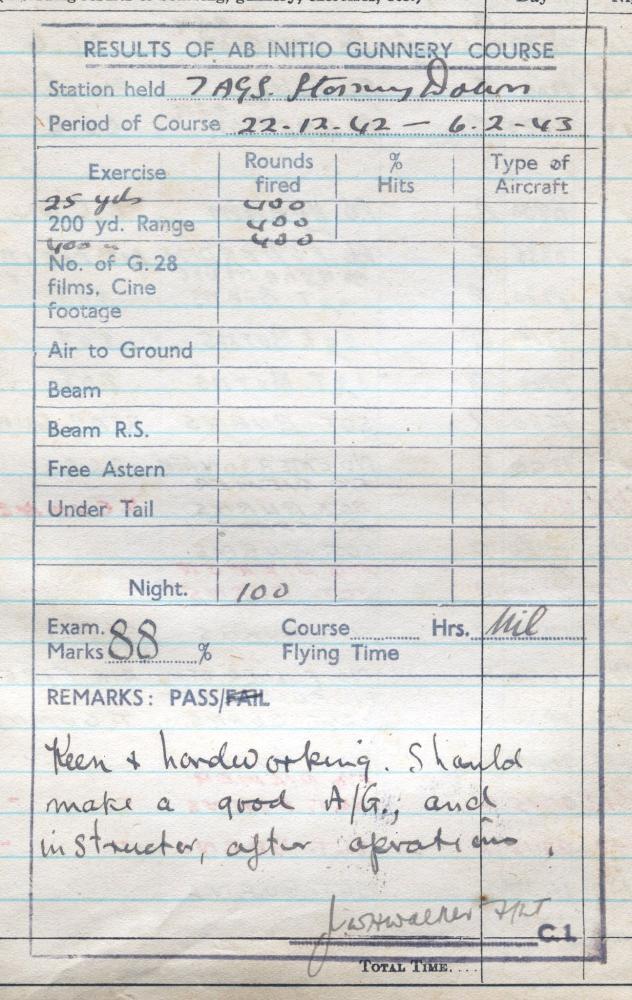 RESULTS OF AB INITIO GUNNERY COURSE
Station held 7 AGS. Stormy Down
Period of Course 22-12-42 — 6.2-43
Exercise Rounds fired % Hits Type of Aircraft
25 yds 400
200 yd. Range 400
400 " 400
No. of G.28
films, Cine
footage
Air to Ground
Beam
Beam R.S.
Free Astern
Under Tail
Night. 100
Exam. Course Hrs. Nil
Marks 88 % Flying Time
REMARKS: PASS/FAIL
Keen & hardworking. Should
make a good A/G., and
instructor, after oprations.
Walker F/Lt
C.1
TOTAL TIME....